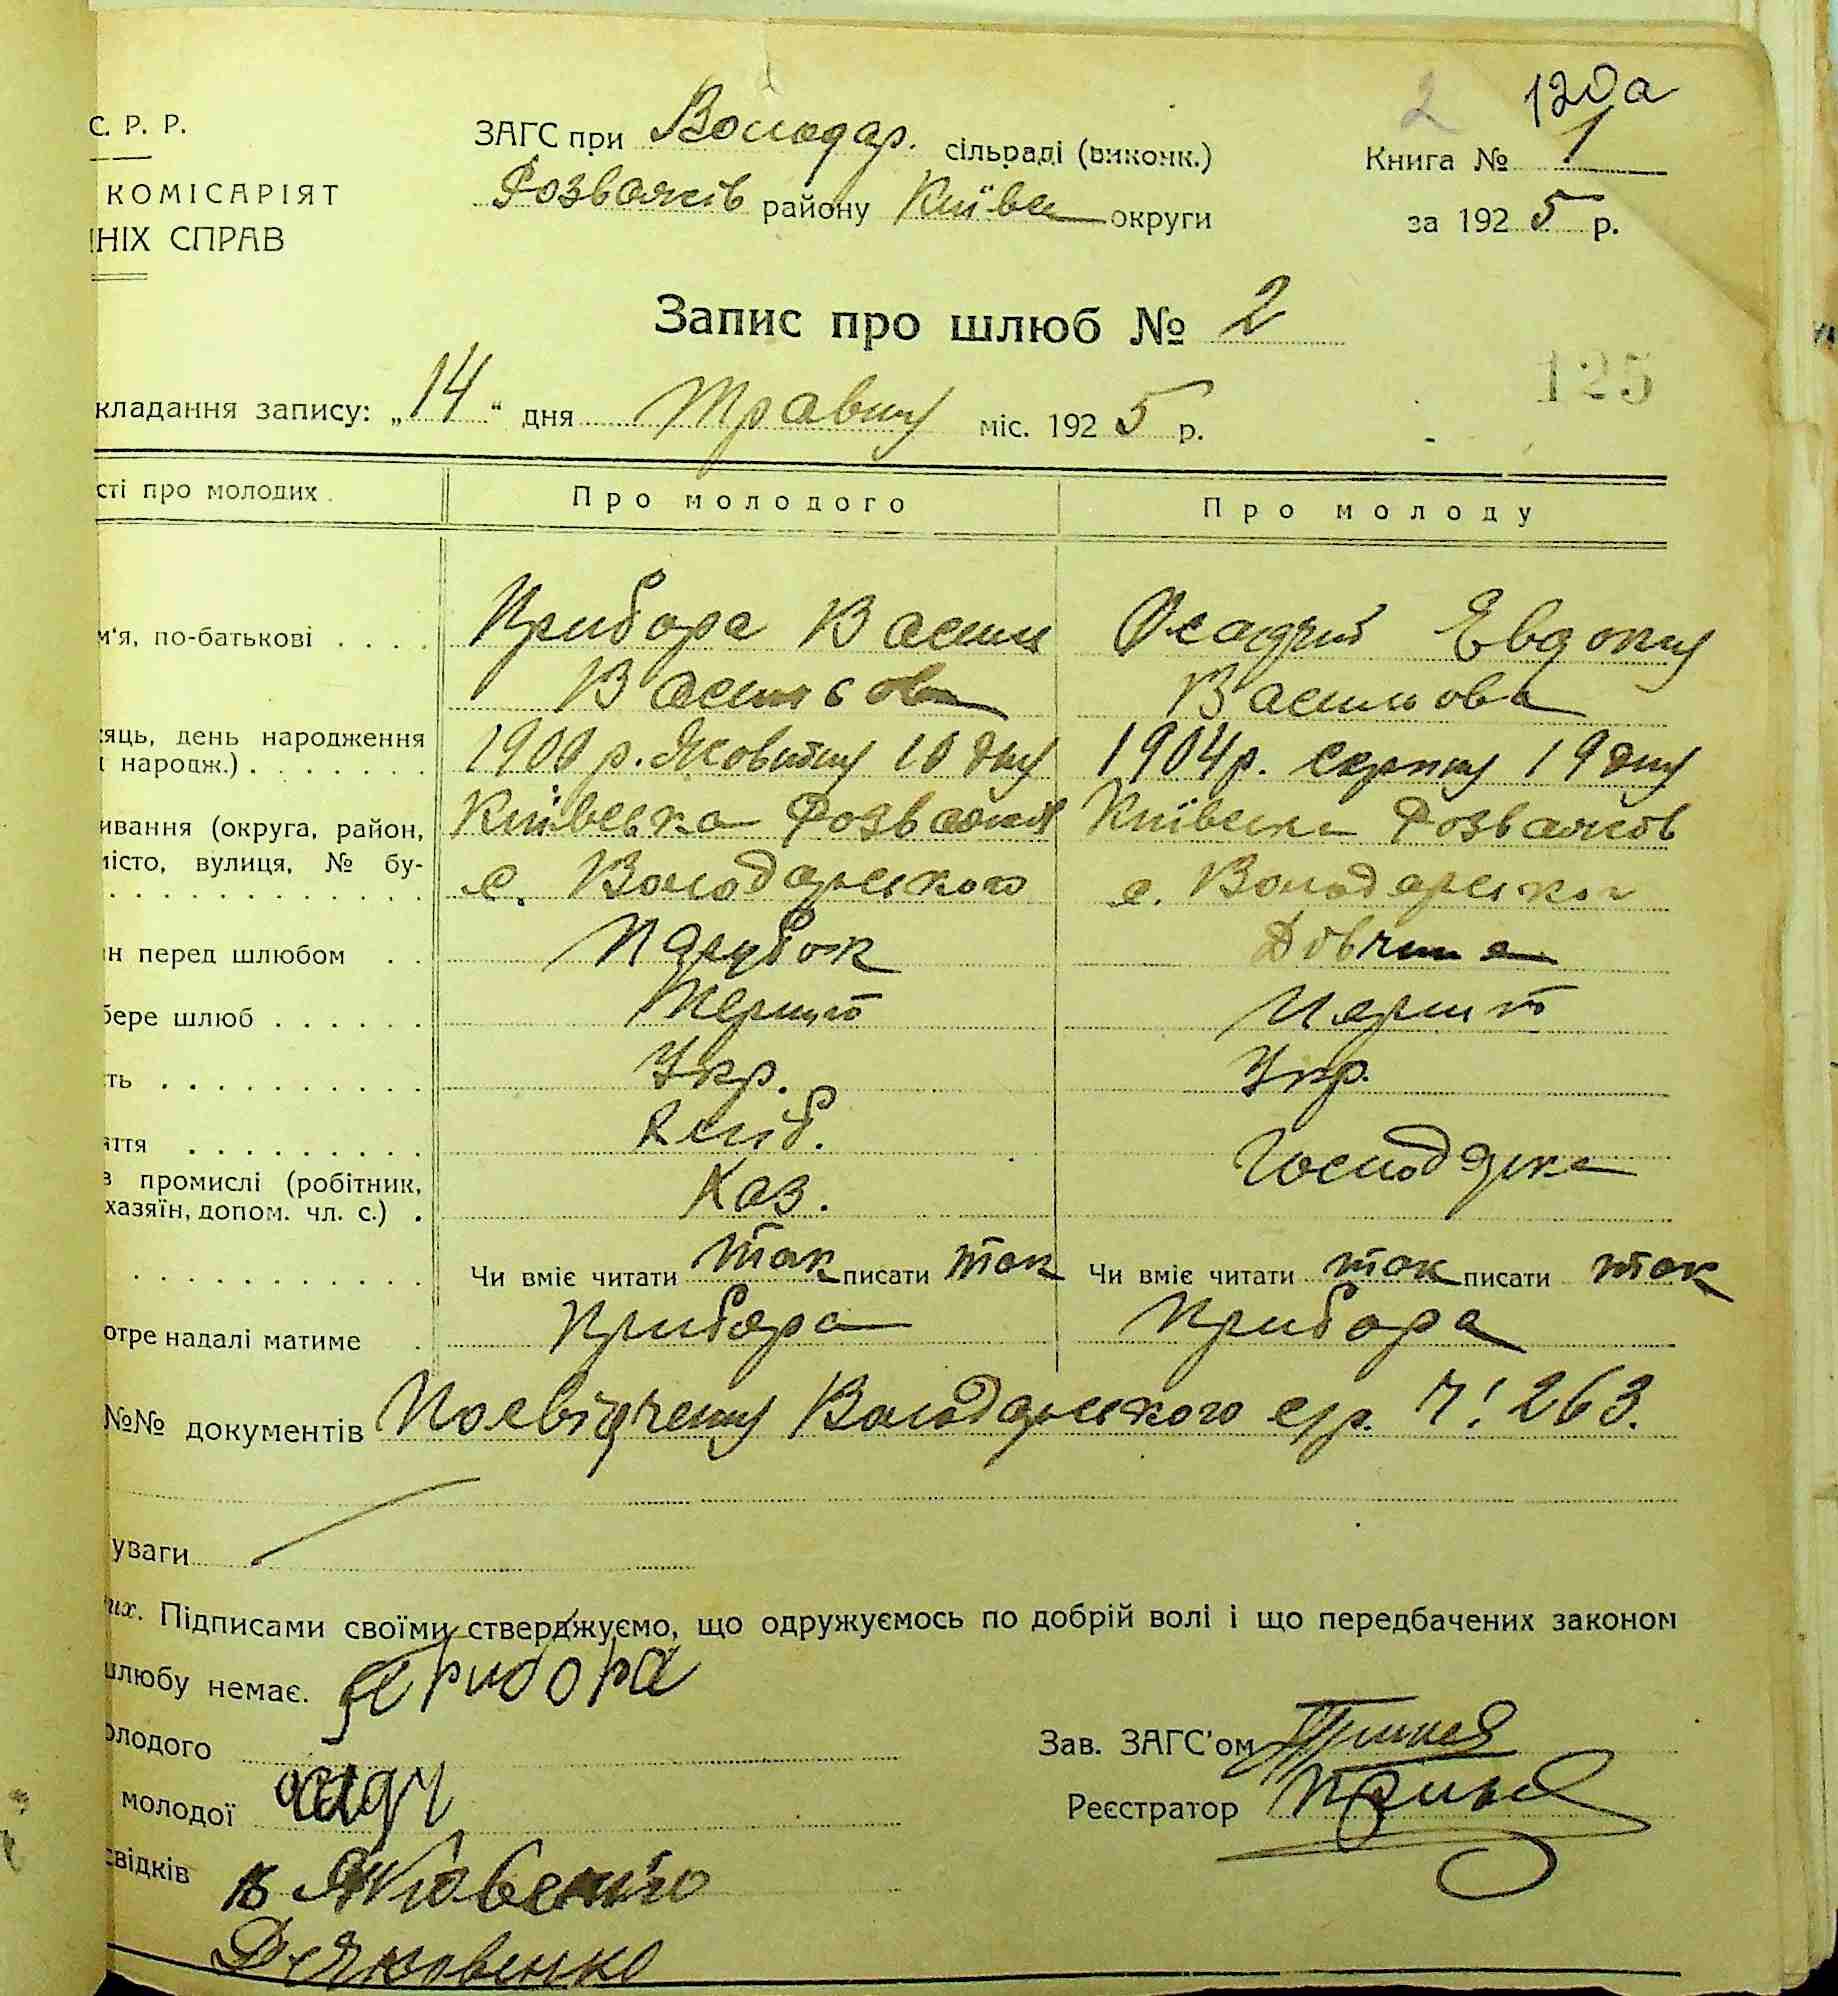 2 120а
С. Р. Р.
ЗАГС при Володар. сільраді (виконк.) Книга № 1
КОМІСАРІЯТ
Розважів району Київськ округи за 1925 р.
НІХ СПРАВ
Запис про шлюб № 2
125
кладання запису: „14“ дня Травня міс. 1925 р.
сті про молодих. Про молодого Про молоду
м'я, по-батькові . . . . Прибора Васил Осадчий Евдокия
Васильов Василова
сяць, день народження 1900 р. Жовтня 10 дня 1904 р. серпня 19 дня
і народж.) . . . . . . .
ивання (округа, район, Київська Розважів Київська Розважів
місто, вулиця, № бу- с. Володарського с. Володарског
н перед шлюбом . . Парубок Дівчина
бере шлюб . . . . . . Перший Перший
сть . . . . . . . . . . Укр. Укр.
яття . . . . . . . . . Хліб. Господарка
в промислі (робітник, Хаз.
хазяїн, допом. чл. с.) .
Чи вміє читати так писати так Чи вміє читати так писати так
отре надалі матиме . Прибора Прибора
№№ документів Посвідчення Володарського с/р. Ч! 263.
уваги
их. Підписами своїми стверджуємо, що одружуємось по добрій волі і що передбачених законом
шлюбу немає. Прибора
олодого Зав. ЗАГС'ом
молодої осадч Реєстратор
свідків Яковенко
Д Яковенко